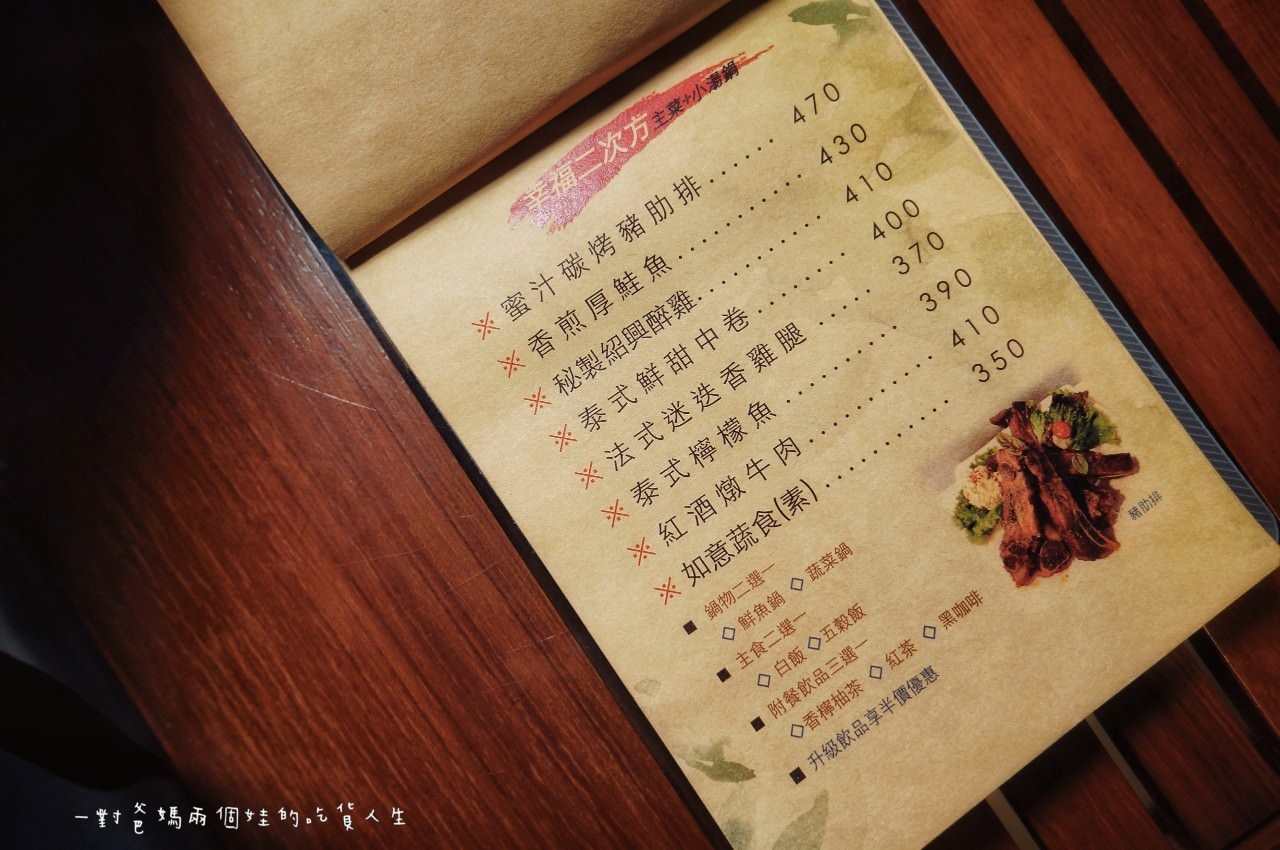 幸福二次方 主菜+小湯鍋
※ 蜜汁碳烤豬肋排...... 470
※ 香煎厚鮭魚........... 430
※ 秘製紹興醉雞........... 410
※ 泰式鮮甜中卷......... 400
※ 法式迷迭香雞腿...... 370
※ 泰式檸檬魚.......... 390
※ 紅酒燉牛肉........... 410
※ 如意蔬食(素)........... 350
豬肋排
■ 鍋物二選一
◇ 鮮魚鍋 ◇ 蔬菜鍋
■ 主食二選一
◇ 白飯 ◇ 五穀飯
■ 附餐飲品三選一
◇ 香檸柚茶 ◇ 紅茶 ◇ 黑咖啡
■ 升級飲品享半價優惠
一對爸媽兩個娃的吃貨人生